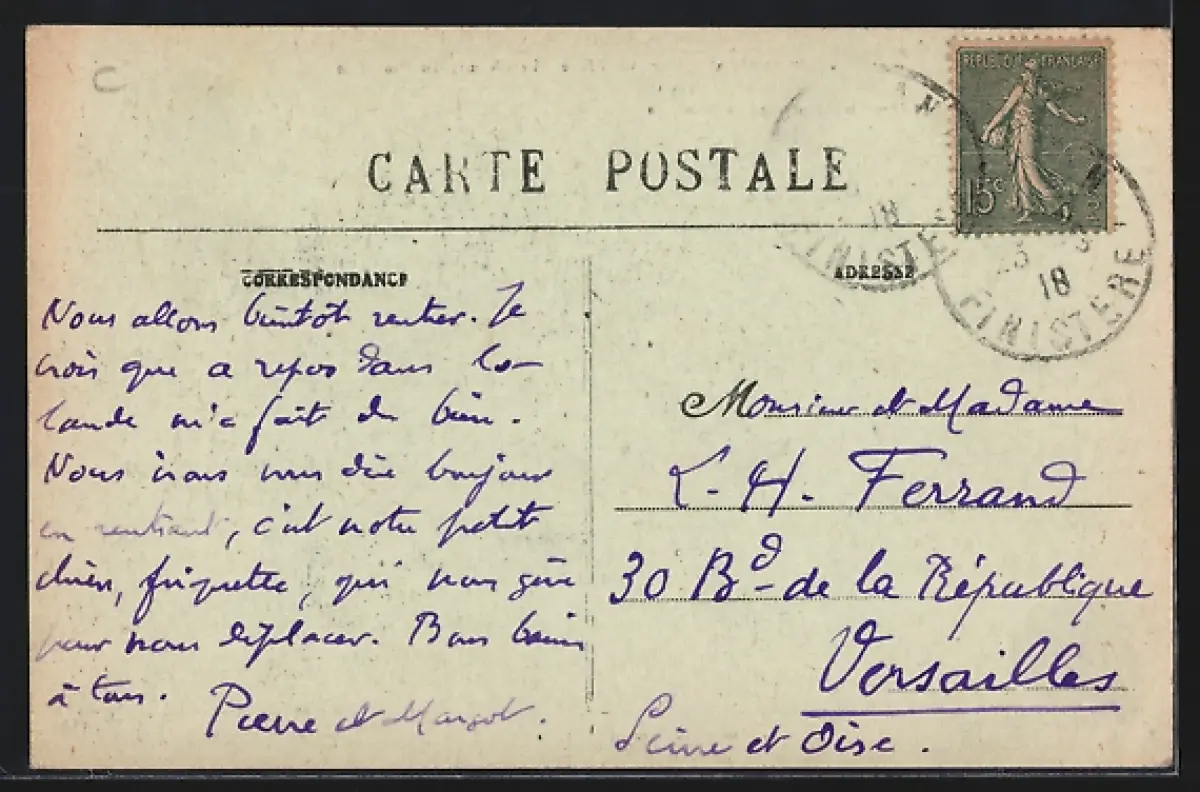 CARTE POSTALE
REPUBLIQUE FRANÇAISE
15c
18
FINISTERE
18
FINISTERE
CORRESPONDANCE
ADRESSE
Nous allons bientôt rentrer. Je
crois que a repos dans la
lande m'a fait du bien.
Nous irons vous dire bonjour
en rentrant, c'est notre petit
chien, friquette, qui nous gêne
pour nous déplacer. Bons baisers
à tous.
Pierre et Margot.
Monsieur et Madame
L. H. Ferrand
30 Bd de la République
Versailles
Seine et Oise.